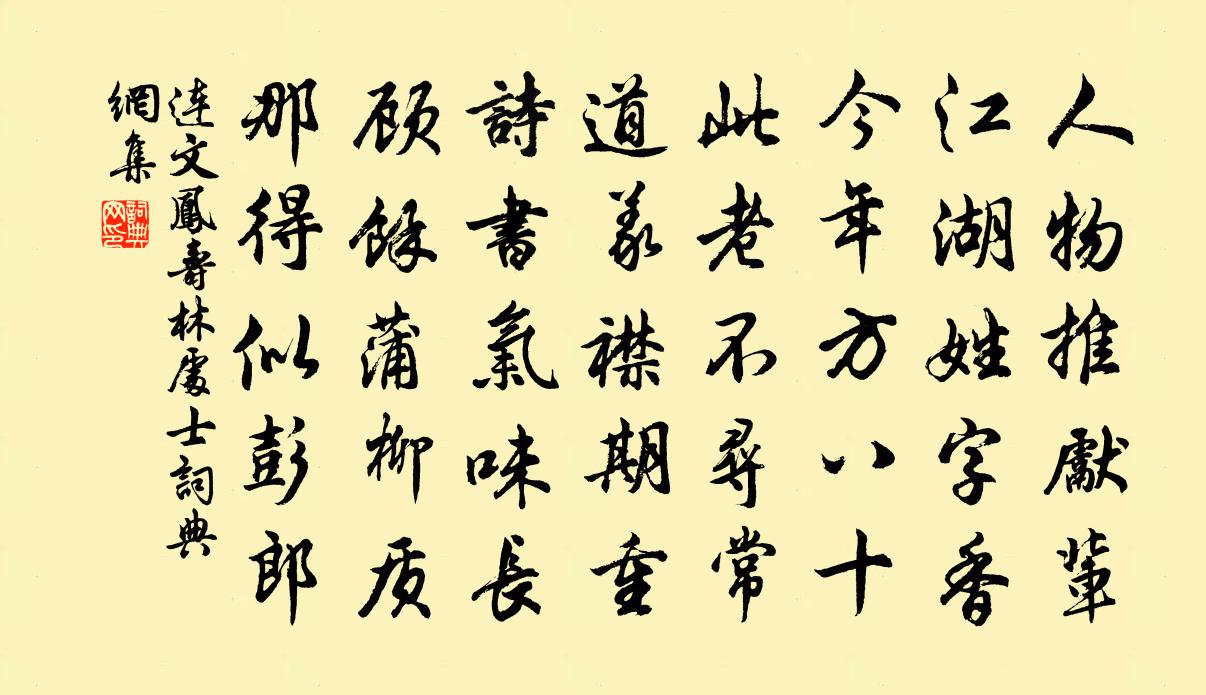 人物推獻輩
江湖姓字香
今年方八十
此老不尋常
道義襟期重
詩書氣味長
顧餘蒲柳質
那得似彭郎
連文鳳壽林處士詞典
網集
詞典
网印